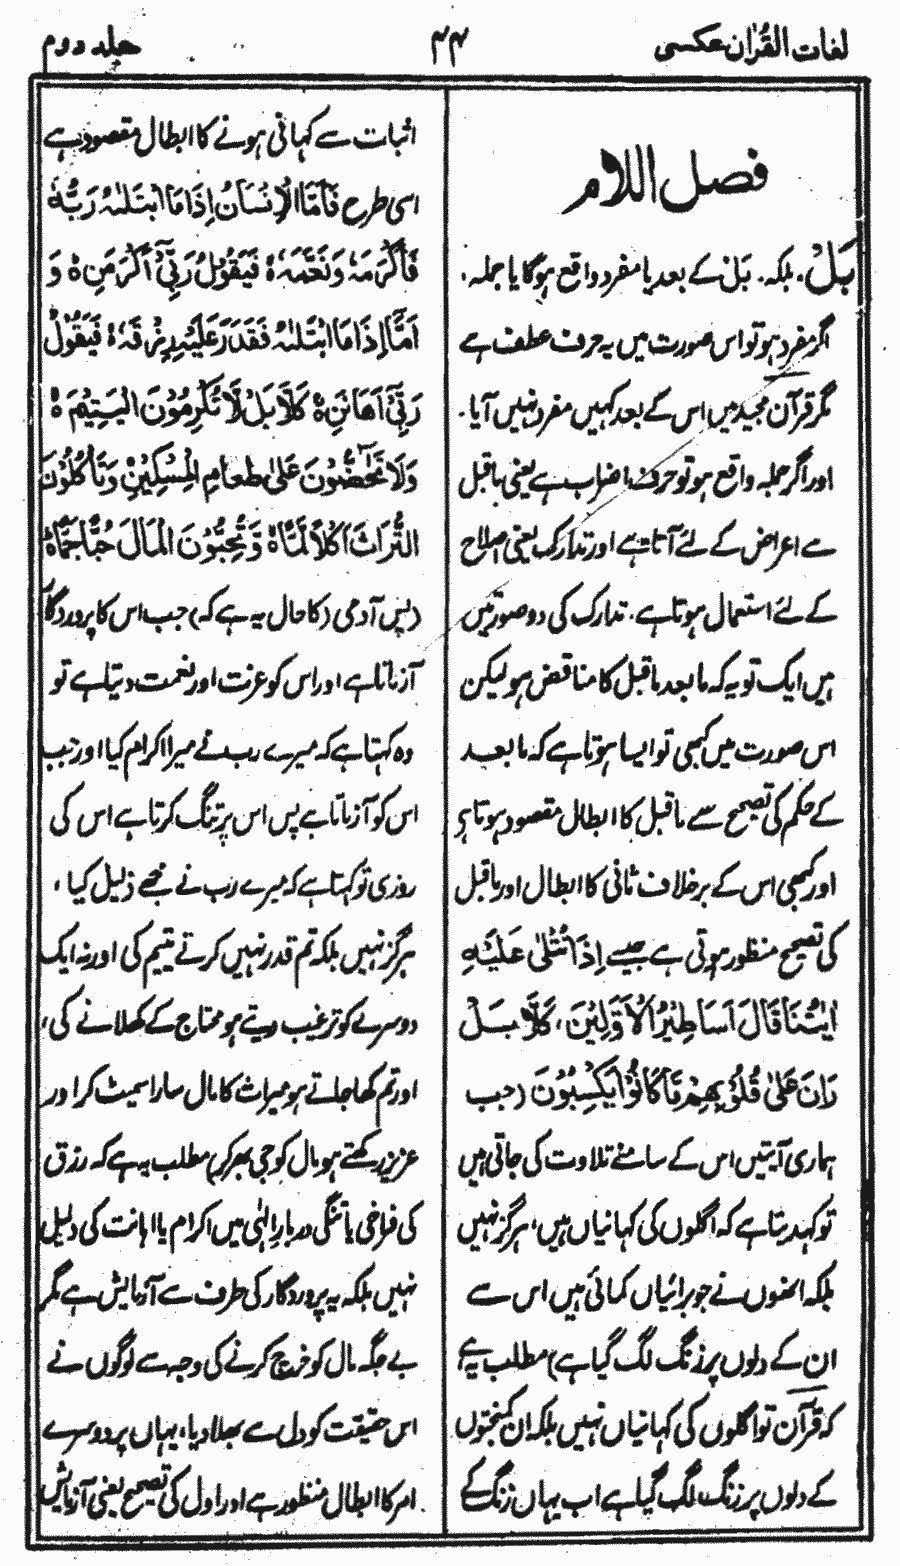 لغات القرٰان عکسی
۴۴
جلد دوم
فصل اللام
بَلْ۔ بلکہ۔ بَلْ کے بعد یا مفرد واقع ہوگا یا جملہ۔
اگر مفرد ہو تو اس صورت میں یہ حرف عطف ہے
مگر قرآن مجید میں اس کے بعد کہیں مفرد نہیں آیا۔
اور اگر جملہ واقع ہو تو حرف اضراب ہے یعنی ماقبل
سے اعراض کے لئے آتا ہے اور تدارک یعنی اصلاح
کے لئے استعمال ہوتا ہے۔ تدارک کی دو صورتیں
ہیں ایک تو یہ کہ مابعد ماقبل کا مناقض ہو لیکن
اس صورت میں کبھی تو ایسا ہوتا ہے کہ مابعد
کے حکم کی تصحیح سے ماقبل کا ابطال مقصود ہوتا ہی
اور کبھی اس کے برخلاف ثانی کا ابطال اور ماقبل
کی تصحیح منظور ہوتی ہے جیسے اِذَا تُتْلٰی عَلَیْہِ
اٰیٰتُنَا قَالَ اَسَاطِیْرُ الْاَوَّلِیْنَ، کَلَّا بَلْ
رَانَ عَلٰی قُلُوْبِھِمْ مَّا کَانُوْا یَکْسِبُوْنَ (جب
ہماری آیتیں اس کے سامنے تلاوت کی جاتی ہیں
تو کہدیتا ہے کہ اگلوں کی کہانیاں ہیں، ہرگز نہیں
بلکہ انھوں نے جو برائیاں کمائی ہیں اس سے
ان کے دلوں پر زنگ لگ گیا ہے) مطلب یہ ہے
کہ قرآن تو اگلوں کی کہانیاں نہیں بلکہ ان کمبختوں
کے دلوں پر زنگ لگ گیا ہے اب یہاں زنگ کے
اثبات سے کہانی ہونے کا ابطال مقصود ہے
اسی طرح فَاَمَّا الْاِنْسَانُ اِذَا مَا ابْتَلٰىہُ رَبُّہٗ
فَاَکْرَمَہٗ وَنَعَّمَہٗ ۥۙ فَیَقُوْلُ رَبِّیْۤ اَکْرَمَنِ ۃؕ وَ
اَمَّاۤ اِذَا مَا ابْتَلٰىہُ فَقَدَرَ عَلَیْہِ رِزْقَہٗ ۥۙ فَیَقُوْلُ
رَبِّیْۤ اَھَانَنِ ۃۚ کَلَّا بَلْ لَّا تُکْرِمُوْنَ الْیَتِیْمَ ۃۙ
وَلَا تَحٰٓضُّوْنَ عَلٰی طَعَامِ الْمِسْکِیْنِ ۃۙ وَتَاْکُلُوْنَ
التُّرَاثَ اَکْلًا لَّمًّا ۃۙ وَّتُحِبُّوْنَ الْمَالَ حُبًّا جَمًّا ۃؕ
(پس آدمی (کا حال یہ ہے کہ) جب اس کا پروردگار
آزماتا ہے اور اس کو عزت اور نعمت دیتا ہے تو
وہ کہتا ہے کہ میرے رب نے میرا اکرام کیا اور جب
اس کو آزماتا ہے پس اس پر تنگ کرتا ہے اس کی
روزی تو کہتا ہے کہ میرے رب نے مجھے ذلیل کیا،
ہرگز نہیں بلکہ تم قدر نہیں کرتے یتیم کی اور نہ ایک
دوسرے کو ترغیب دیتے ہو محتاج کے کھلانے کی،
اور تم کھا جاتے ہو میراث کا مال سارا سمیٹ کر اور
عزیز رکھتے ہو مال کو جی بھر کر) مطلب یہ ہے کہ رزق
کی فراخی یا تنگی دربارِ الٰہی میں اکرام یا اہانت کی دلیل
نہیں بلکہ یہ پروردگار کی طرف سے آزمایش ہے مگر
بے جگہ مال کو خرچ کرنے کی وجہ سے لوگوں نے
اس حقیقت کو دل سے بھلا دیا، یہاں پر دوسرے
امر کا ابطال منظور ہے اور اول کی تصحیح یعنی آزمایش